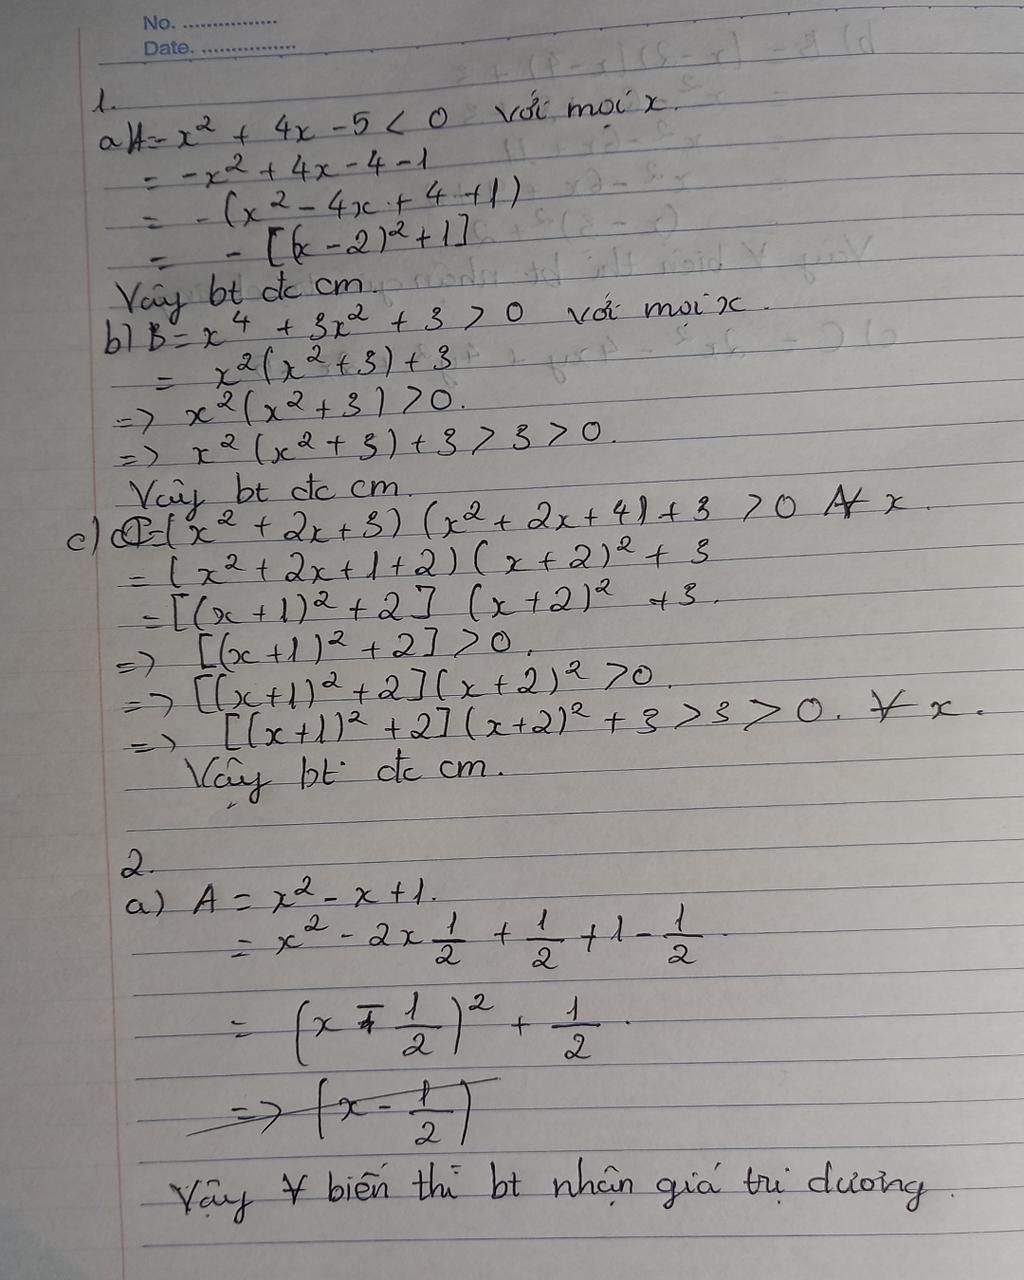 No. ................
Date. ................
1.
a A = x² + 4x - 5 < 0 với mọi x.
= -x² + 4x - 4 - 1
= -(x² - 4x + 4 + 1)
= -[(x - 2)² + 1]
Vậy bt đc cm.
b) B = x⁴ + 3x² + 3 > 0 với mọi x.
= x²(x² + 3) + 3
=> x²(x² + 3) > 0.
=> x²(x² + 3) + 3 > 3 > 0.
Vậy bt đc cm.
c) C = (x² + 2x + 3)(x² + 2x + 4) + 3 > 0 ∀ x.
= (x² + 2x + 1 + 2)(x + 2)² + 3
= [(x + 1)² + 2] (x + 2)² + 3.
=> [(x + 1)² + 2] > 0.
=> [(x + 1)² + 2](x + 2)² > 0.
=> [(x + 1)² + 2](x + 2)² + 3 > 3 > 0. ∀ x.
Vậy bt đc cm.
2.
a) A = x² - x + 1.
= x² - 2x 1/2 + 1/2 + 1 - 1/2
= (x - 1/2)² + 1/2.
=> (x - 1/2)
Vậy ∀ biến thì bt nhận giá trị dương.